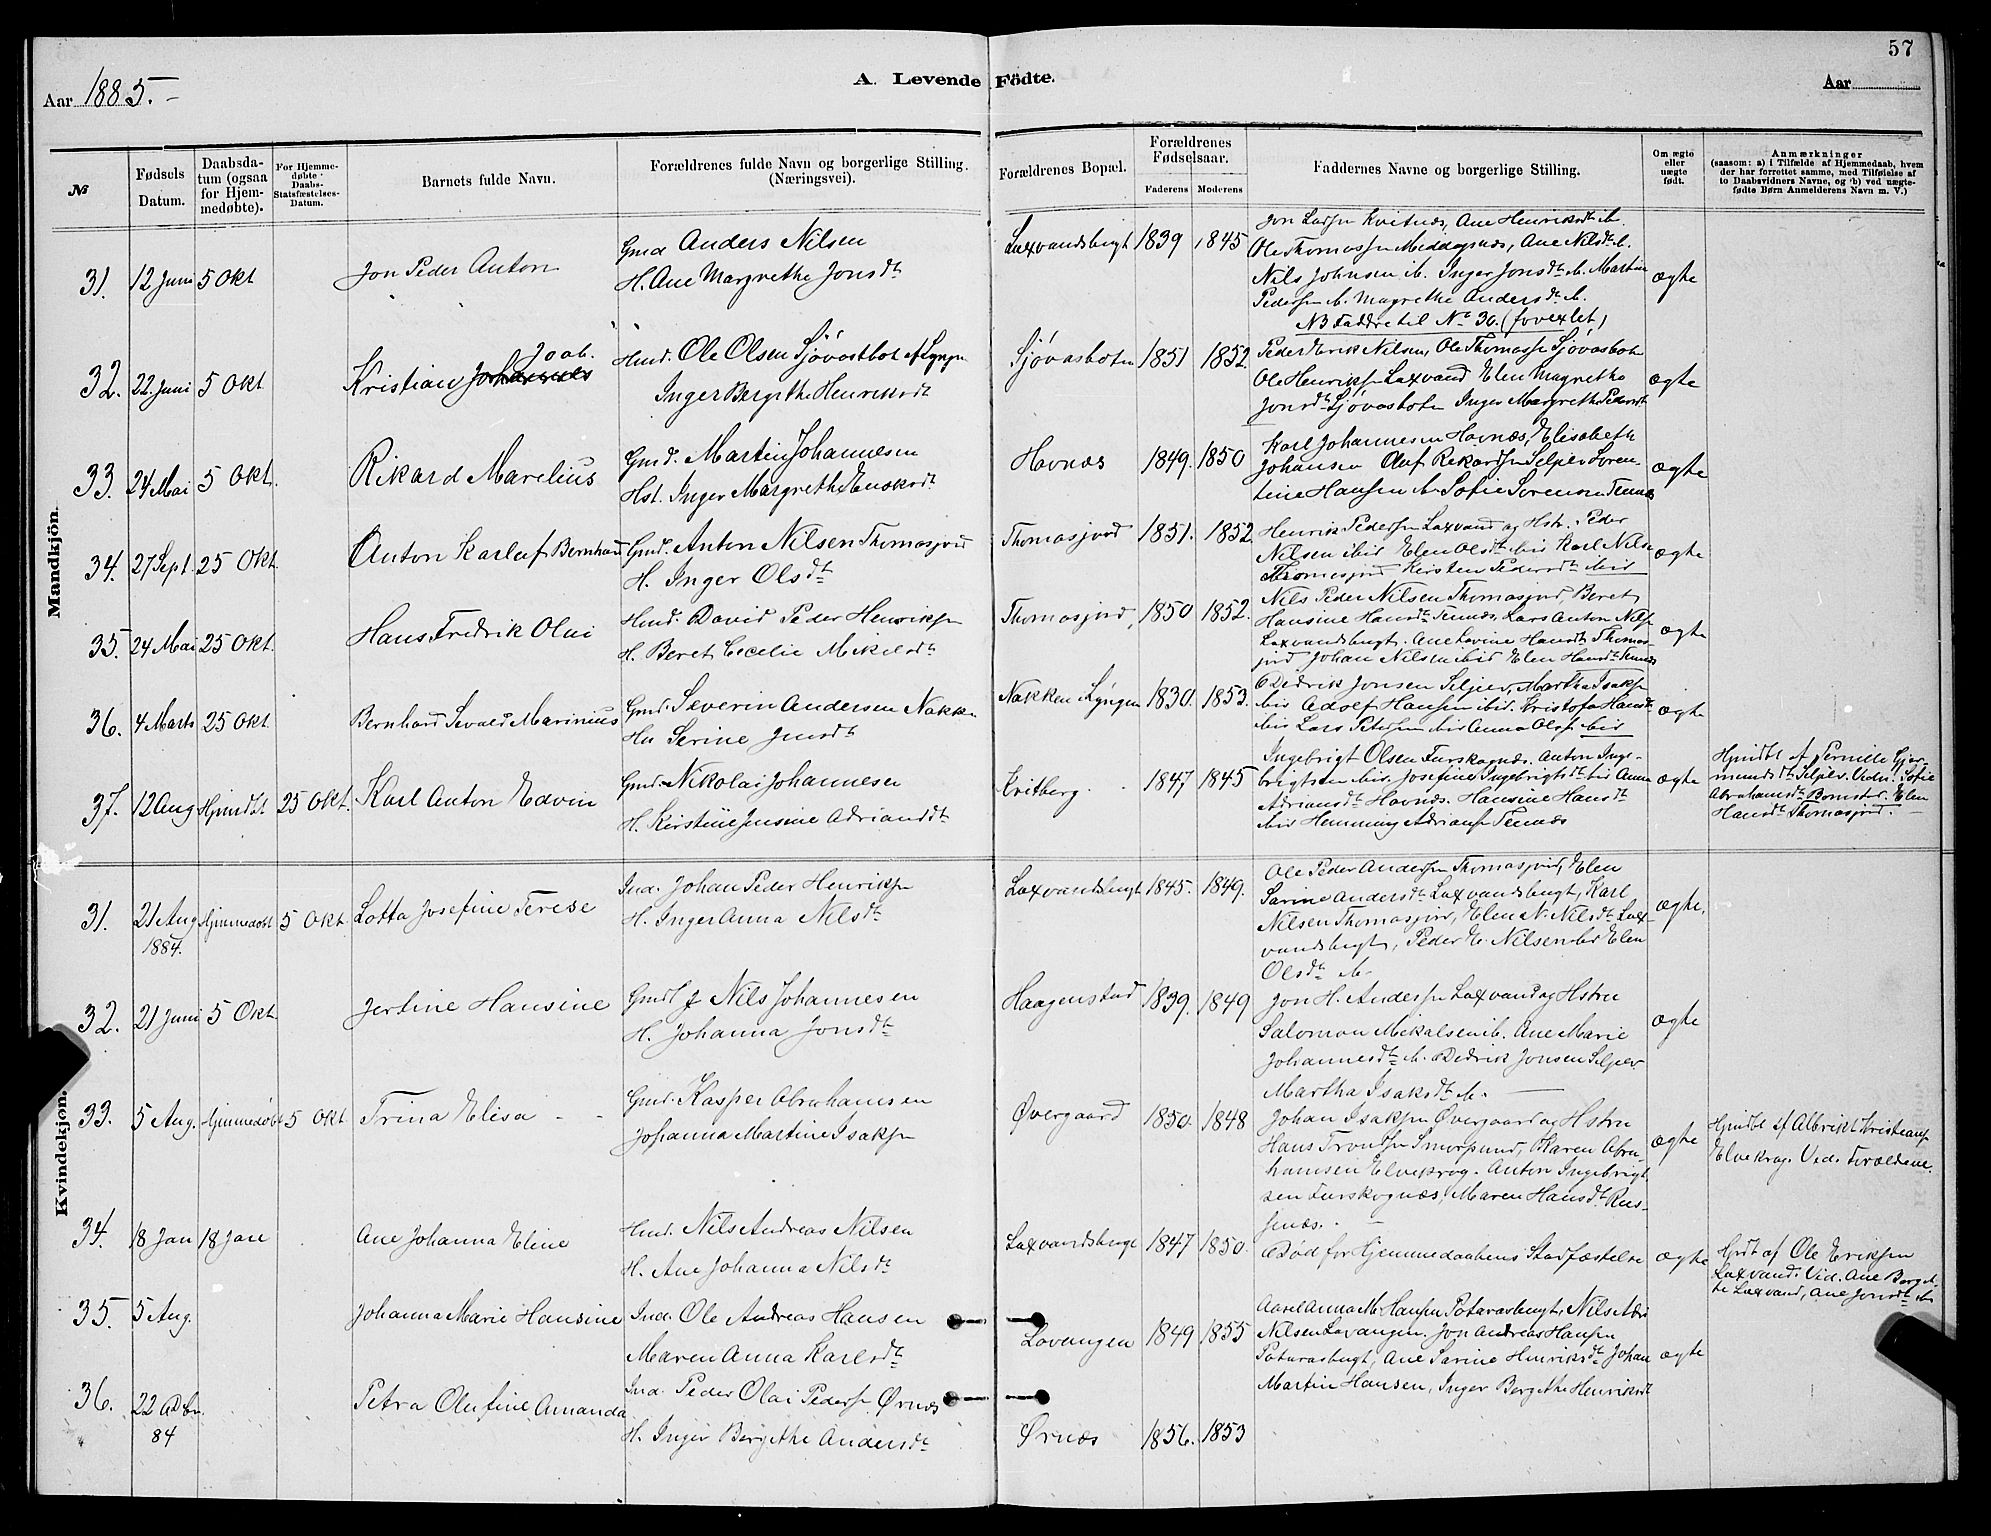 57
Aar 1885.-
A. Levende Födte.
Aar
№
Fødsels Datum.
Daabsdatum (ogsaa for Hjemmedøbte).
For Hjemmedøbte Daabs-Stadsfæstelses-Datum.
Barnets fulde Navn.
Forældrenes fulde Navn og borgerlige Stilling. (Næringsvei).
Forældrenes Bopæl.
Forældrenes Fødselsaar.
Faderens Moderens
Faddernes Navne og borgerlige Stilling.
Om ægte eller uægte født.
Anmærkninger
(saasom: a) i Tilfælde af Hjemmedaab, hvem
der har forrettet samme, med Tilføielse af
to Daabsvidners Navne, og b) ved uægte-
fødte Børn Anmelderens Navn m. V.)
Mandkjön.
31. 12 Juni 5 Okt Jon Peder Anton
Gmd Anders Nilsen
H. Ane Margrethe Jonsdt
Laxvandsbugt 1839 1845
Jon Larsen Kvitnæs, Ane Henriksdt ib.
Ole Thomassen Middagsnæs, Ane Nilsdt ib.
Nils Johnsen ib. Inger Jonsdt ib. Martin
Pedersen ib. Magrethe Andersdt ib.
NB Faddre til No 30. (forvexlet)
ægte
32. 22 Juni 5 Okt Kristian Joab.
Hmd. Ole Olsen Sjøvastbot af Lyngen
Inger Bergithe Henriksdt
Sjøvasboten 1851 1852.
Peder Henrik Nilsen, Ole Thomassen Sjøvasbotn
Ole Henriksen Laxvand Elen Magrethe
Jonsdt Sjøvasboten Inger Margrethe Pedersdt
ægte
33. 24 Mai 5 Okt. Rikard Marelius
Gmd. Martin Johannesen
Hst. Inger Margrethe Enoksdt.
Havnæs 1849. 1850
Karl Johannesen Havnæs, Elisabeth
Johansen Oluf Rekardsen Seljelv Soren-
tine Hansen ib. Sofie Sørensen Tennæs
ægte
34. 27 Sept. 25 Okt. Anton Karluf Bernhard
Gmd. Anton Nilsen Thomasjord
H. Inger Olsdt
Thomasjord 1851. 1852
Henrik Pedersen Laxvand og Hstr. Peder
Nilsen ibid Elen Olsdt ibid Karl Nilsen
Thomasjord Kirsten Pedersdt ibid
ægte
35. 24 Mai 25 Okt. Hans Fredrik Olai
Hmd. David Peder Henriksen
H. Beret Cecelie Mikelsdt
Thomasjord, 1850 1852.
Nils Peder Nilsen Thomasjord Beret
Hansine Hansdt Tennæs. Lars Anton Nilsen
Laxvandsbugt. Ane Lovine Hansdt Thomas-
jord Johan Nilsen ibid Elen Hansdt Tennæs
ægte
36. 4 Marts 25 Okt Bernhard Sevald Marinius
Gmd. Severin Andersen Nakken
Hu Serine Jensdt
Nakken Lyngen 1830. 1853.
Didrik Jonsen Seljelv, Martha Isaksen
ibid Adolf Hansen ibid. Kristofa Hansdt
ibid Lars Petersen ibid Anna Olsen ibid
ægte
37. 12 Aug Hjmdbt 25 Okt. Karl Anton Edvin
Gmd. Nikolai Johannesen
H. Kirstine Jensine Adriansdt
Kvitberg. 1847 1845
Ingebrigt Olsen Furskognæs. Anton Inge-
brigtsen ibid. Josefine Ingebrigtsdt ibid Anna
Adriansdt Havnæs. Hansine Hansdt
ibid Hemming Adriansen Tennæs
ægte
Hjmdbt af Pernille Gjer-
mundsdt Seljelv. Vidn. Sofie
Abrahamsdt Bomstad. Elen
Hansdt Thomasjord.
Kvindekjön.
31. 21 Aug 1884. Hjemmedøbt 5 Okt. Lotta Josefine Terese
Ind. Johan Peder Henriksen
H. Inger Anna Nilsdt
Laxvandsbugt 1845. 1849.
Ole Peder Andersen Thomasjord, Elen
Sarine Andersdt Laxvandsbugt, Karl
Nilsen Thomasjord, Elen N. Nilsdt Lax-
vandsbugt, Peder E. Nilsen ibd Elen
Olsdt ib.
ægte.
32. 21 Juni 5 Okt. Jertine Hansine
Gmd Nils Johannesen
H. Johanna Jonsdt
Haagenstad 1839. 1849
Jon H. Andersen Laxvand og Hstru
Salomon Mikalsen ib. Ane Marie
Johannesdt ib. Didrik Jonsen Seljelv
Martha Isaksdt ib.
ægte
33. 5 Aug. Hjemmedøbt 5 Okt Trina Elisa
Gmd. Kasper Abrahamsen
Johanna Martine Isaksen
Øvergaard 1850. 1848
Johan Isaksen Øvergaard og Hstru
Hans Trondsen Smorsund, Karen Abra-
hamsen Elvekrog. Anton Ingebrigt-
sen Furskognæs, Maren Hansdt Rus-
snæs.
ægte
Hjmdbt af Albrikt Kristiansen
Elvekrog. Vid. Forældrene.
34. 18 Jan 18 Jan Ane Johanna Eline
Hmd. Nils Andreas Nilsen
H. Ane Johanna Nilsdt
Laxvandsbugt 1847 1850.
Død før Hjemmedaabens Stadfæstelse
ægte
Hjdt af Ole Eriksen
Laxvand. Vid. Ane Bergit-
te Laxvand, Ane Jonsdt ib
35. 5 Aug. Johanna Marie Hansine
Ind. Ole Andreas Hansen
Maren Anna Karlsdt
Lavangen 1849 1855
Aarel Anna M. Hansen Potarasbugt, Nils Adri
Nilsen Lavangen. Jon Andreas Hansen
Potarasbugt, Ane Sarine Henriksdt Johan
Martin Hansen, Inger Bergithe Henriksdt
ægte
36. 22 Dcbr. 84 Petra Olufine Amanda
Ind. Peder Olai Pedersen Ørnæs
H. Inger Bergithe Andersdt
Ørnæs 1856. 1853